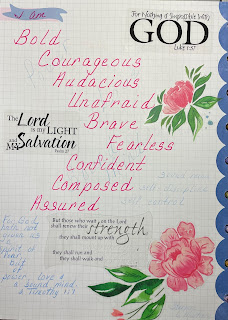 I am
For Nothing is Impossible With
GOD
Luke 1:37
Bold
Courageous
Audacious
Unafraid
Brave
Fearless
Confident
Composed
Assured
The Lord
is my LIGHT
and MY Salvation
Psalm 27
But those who wait on the Lord
shall renew their strength
they shall mount up with
they shall run and
they shall walk and
For God
hath not
spirit of
fear,
but
of
power, love &
a sound mind.
2 Timothy 1:7